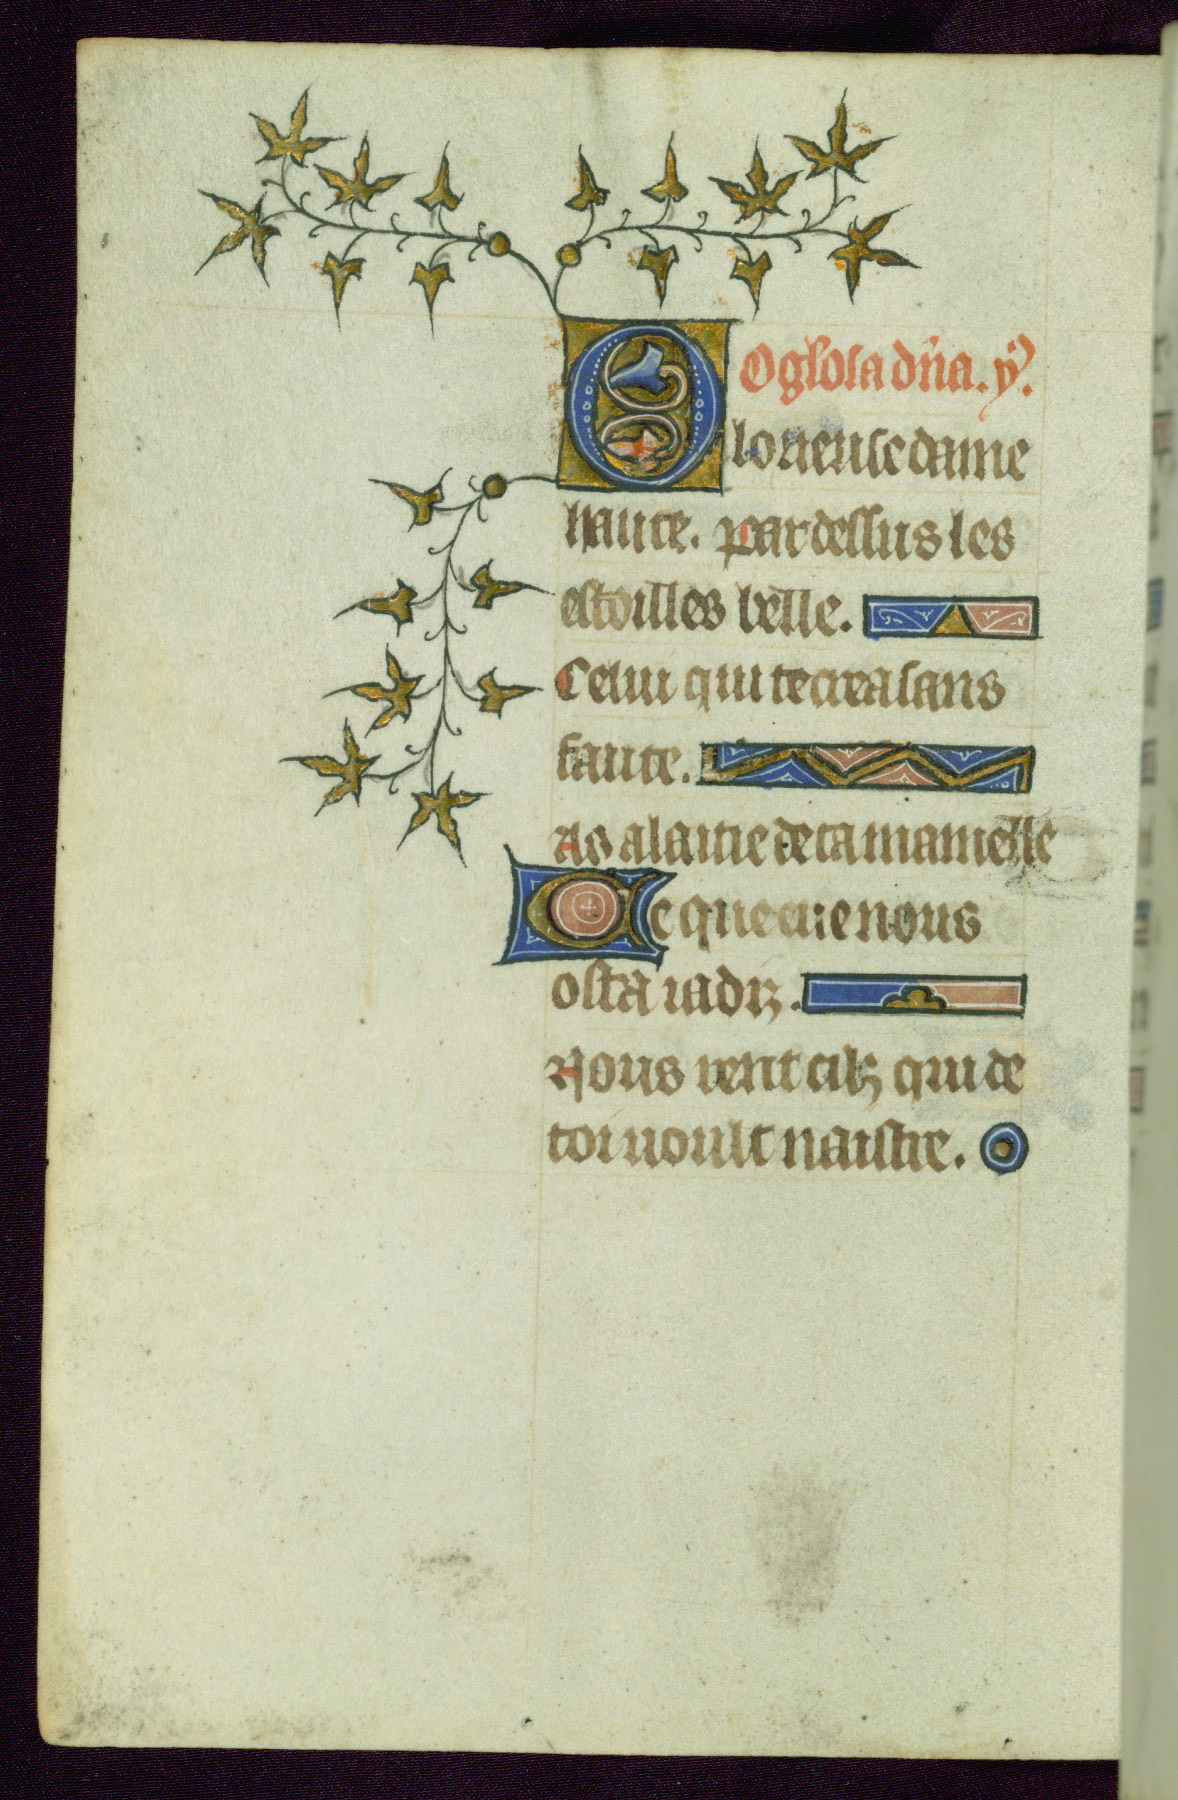 O gl'osa dña. ỹ.
loneuse dame
haute. par dessus les
estoilles belle.
Celui qui te crea sans
faute.
As alaitie de ta mamelle
Ce que eue nous
osta iadiz.
Nous rent cilz qui de
toi uoult naistre.